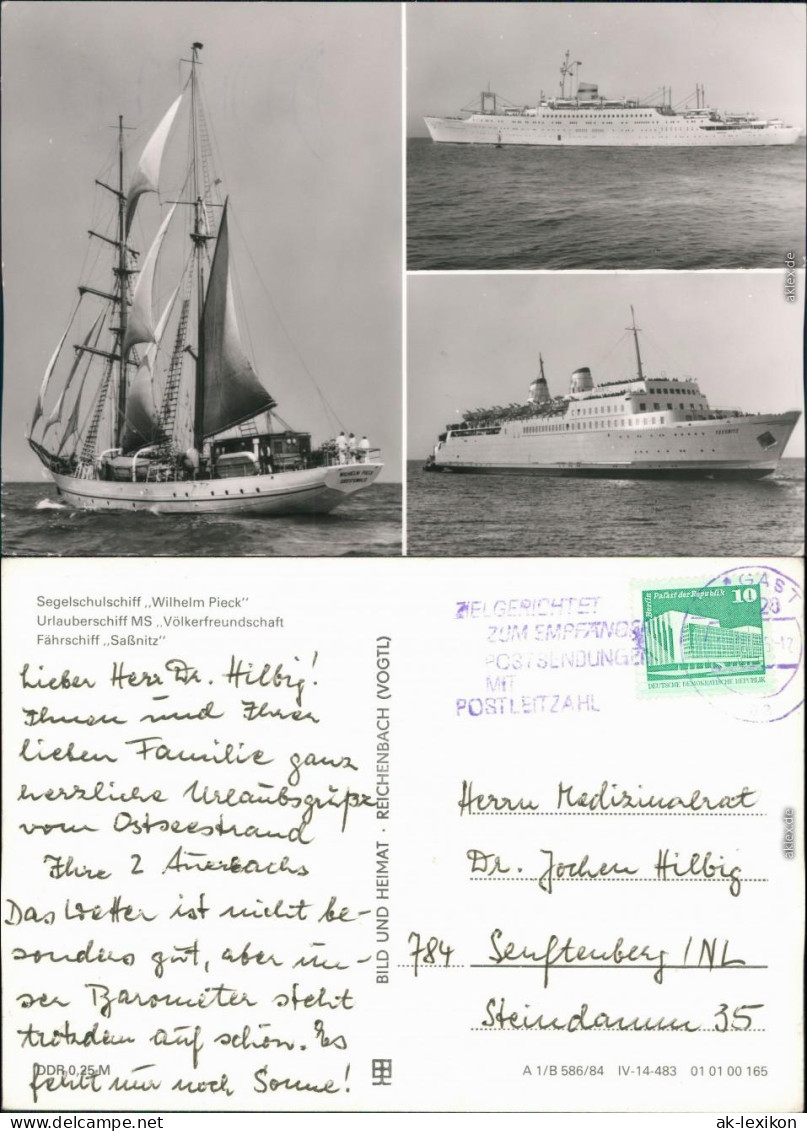 WILHELM PIECK
GREIFSWALD
SASSNITZ
aklex.de
Segelschulschiff „Wilhelm Pieck"
Urlauberschiff MS „Völkerfreundschaft
Fährschiff „Saßnitz"
Lieber Herr Dr. Hilbig!
Ihnen und Ihrer
lieben Familie ganz
herzliche Urlaubsgrüße
vom Ostseestrand
Ihre 2 Auerbachs
Das Wetter ist nicht be-
sonders gut, aber un-
ser Barometer steht
trotzdem auf schön. Es
fehlt nur noch Sonne!
DDR 0,25 M
BILD UND HEIMAT · REICHENBACH (VOGTL)
ZIELGERICHTET
ZUM EMPFÄNGER
POSTSENDUNGEN
MIT
POSTLEITZAHL
Berlin Palast der Republik 10
DEUTSCHE DEMOKRATISCHE REPUBLIK
GAST
Herrn Medizinalrat
Dr. Jochen Hilbig
784 Senftenberg / NL
Steindamm 35
A 1/B 586/84 IV-14-483 01 01 00 165
aklex.de
www.ak-ansichtskarten.de
ak-lexikon